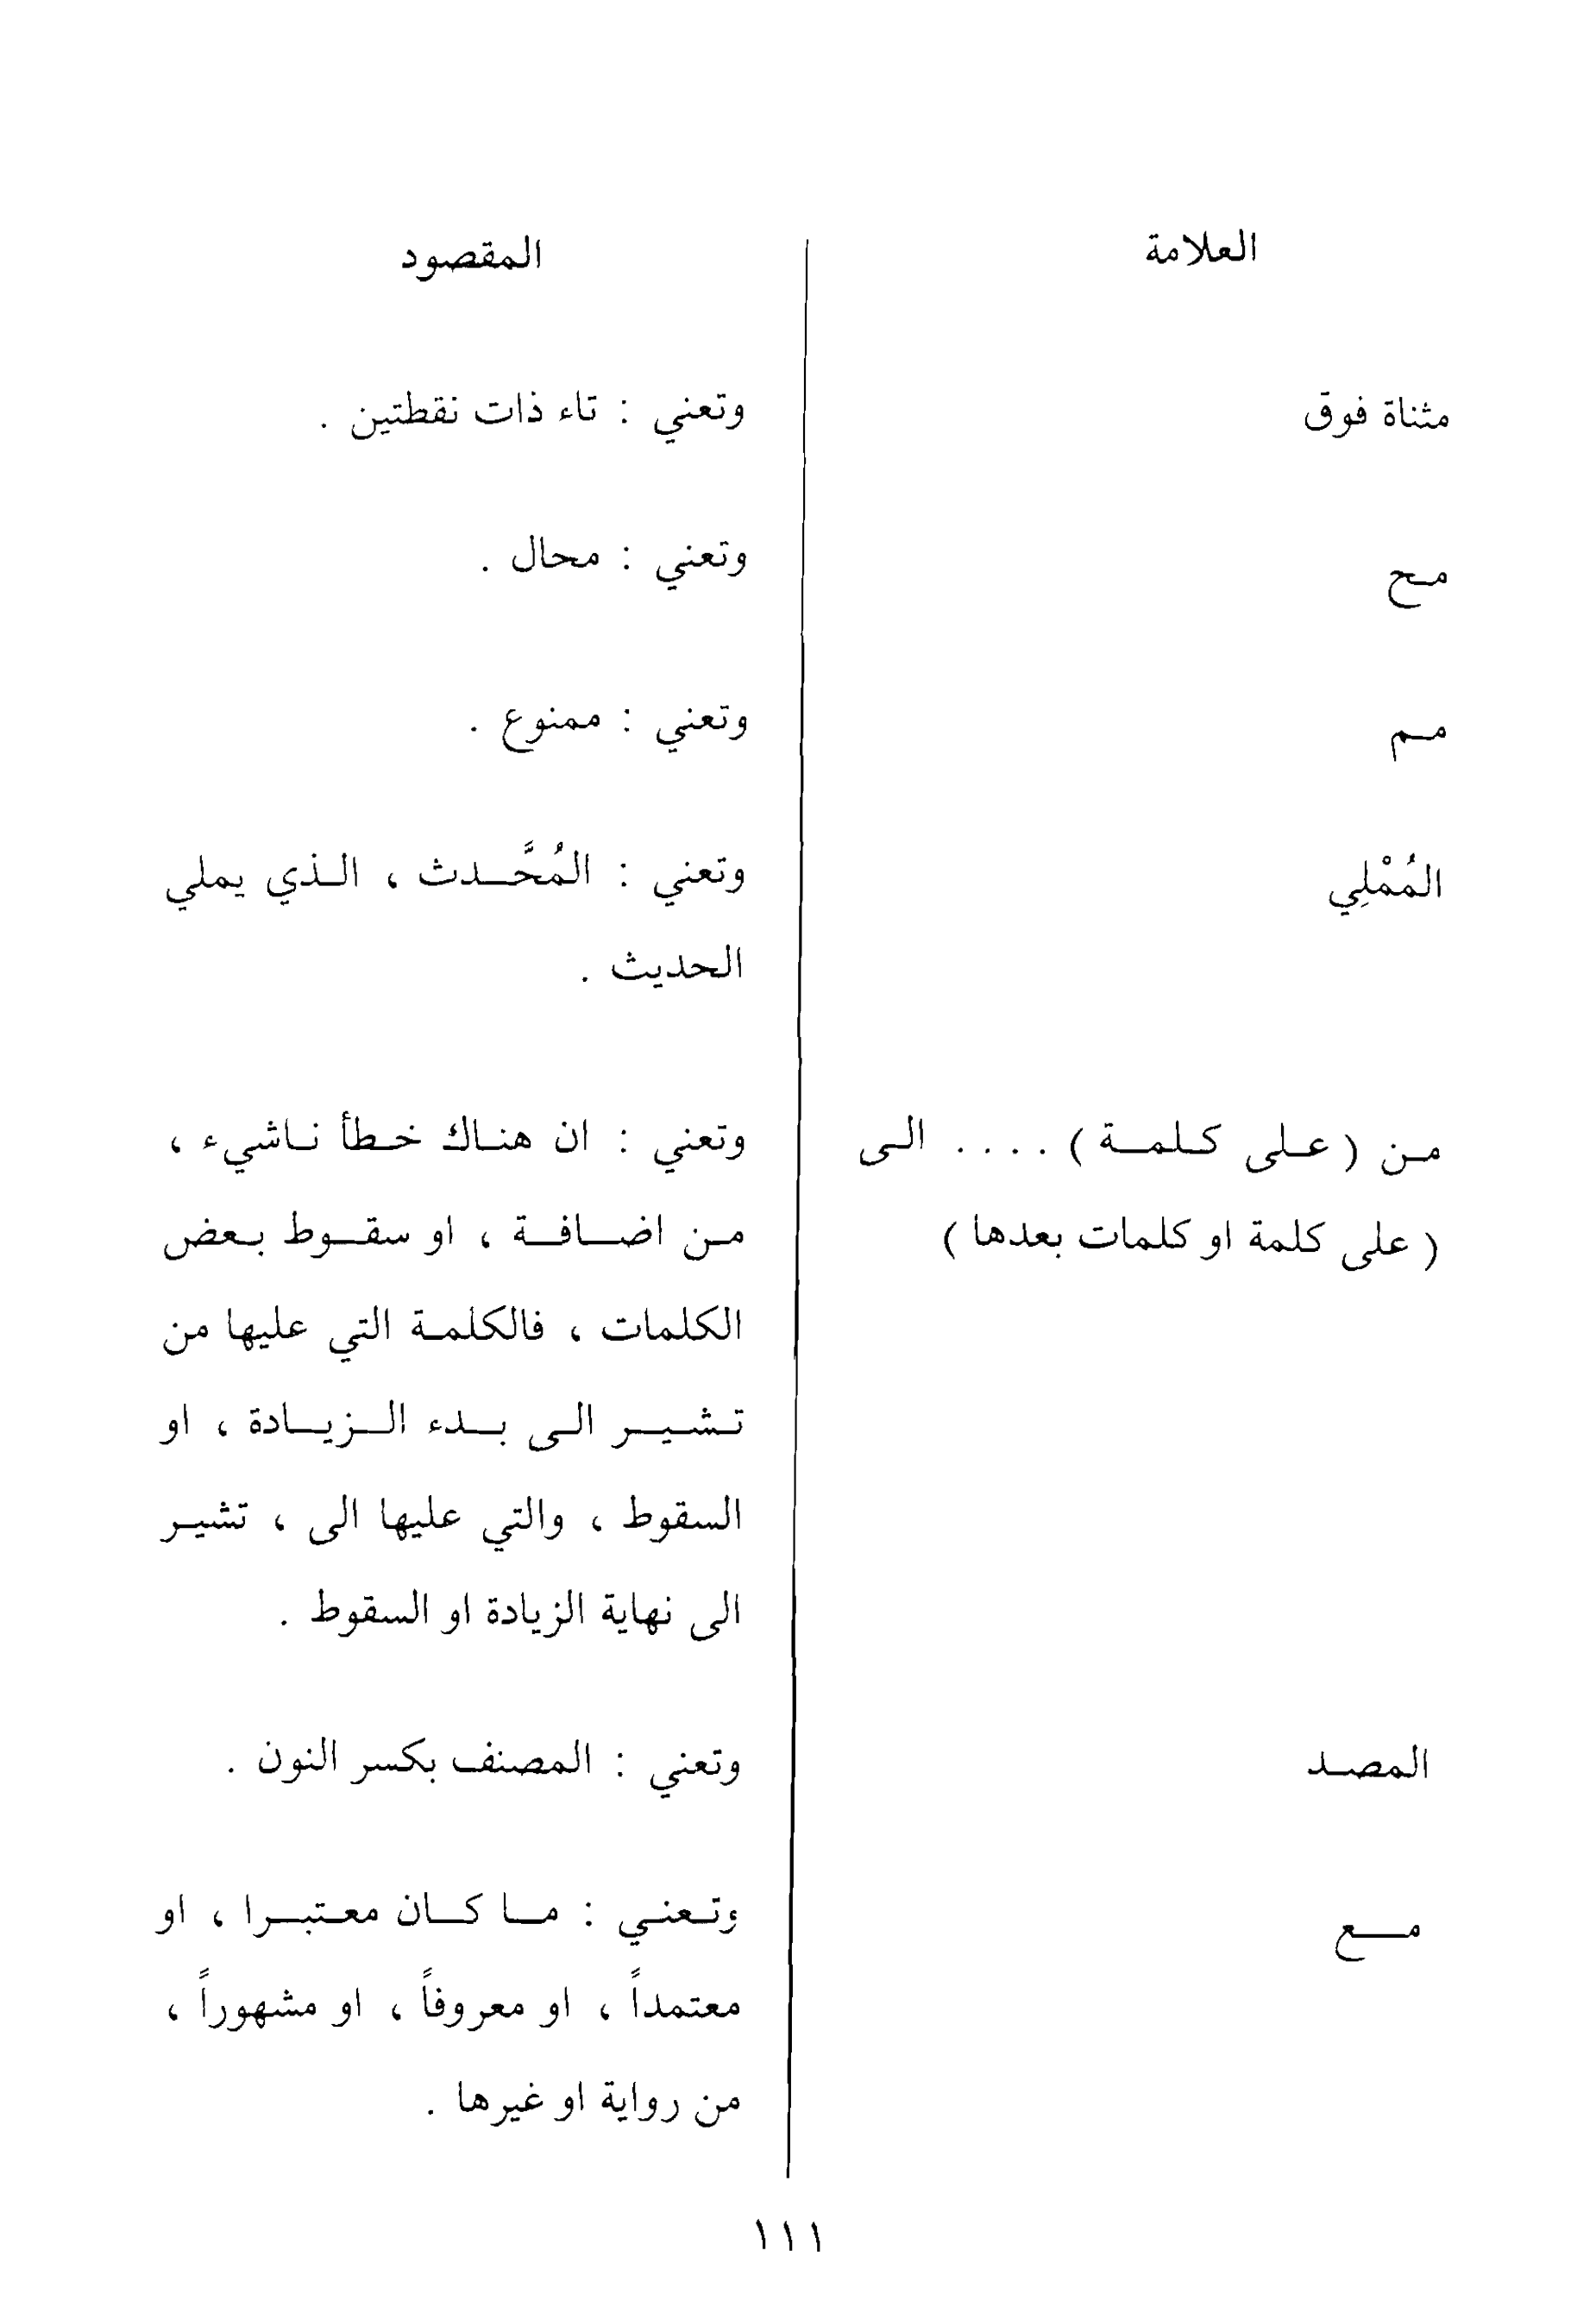 العلامة
المقصود
مثناة فوق
وتعني : تاء ذات نقطتين .
مح
وتعني : محال .
مم
وتعني : ممنوع .
المُمْلِي
وتعني : المُحَّدث ، الذي يملي
الحديث .
من ( على كلمة ) . . . . الى
( على كلمة او كلمات بعدها )
وتعني : ان هناك خطأ ناشيء ،
من اضافة ، او سقوط بعض
الكلمات ، فالكلمة التي عليها من
تشير الى بدء الزيادة ، او
السقوط ، والتي عليها الى ، تشير
الى نهاية الزيادة او السقوط .
المصد
وتعني : المصنف بكسر النون .
مع
وتعني : ما كان معتبرا ، او
معتمداً ، او معروفاً ، او مشهوراً ،
من رواية او غيرها .
١١١